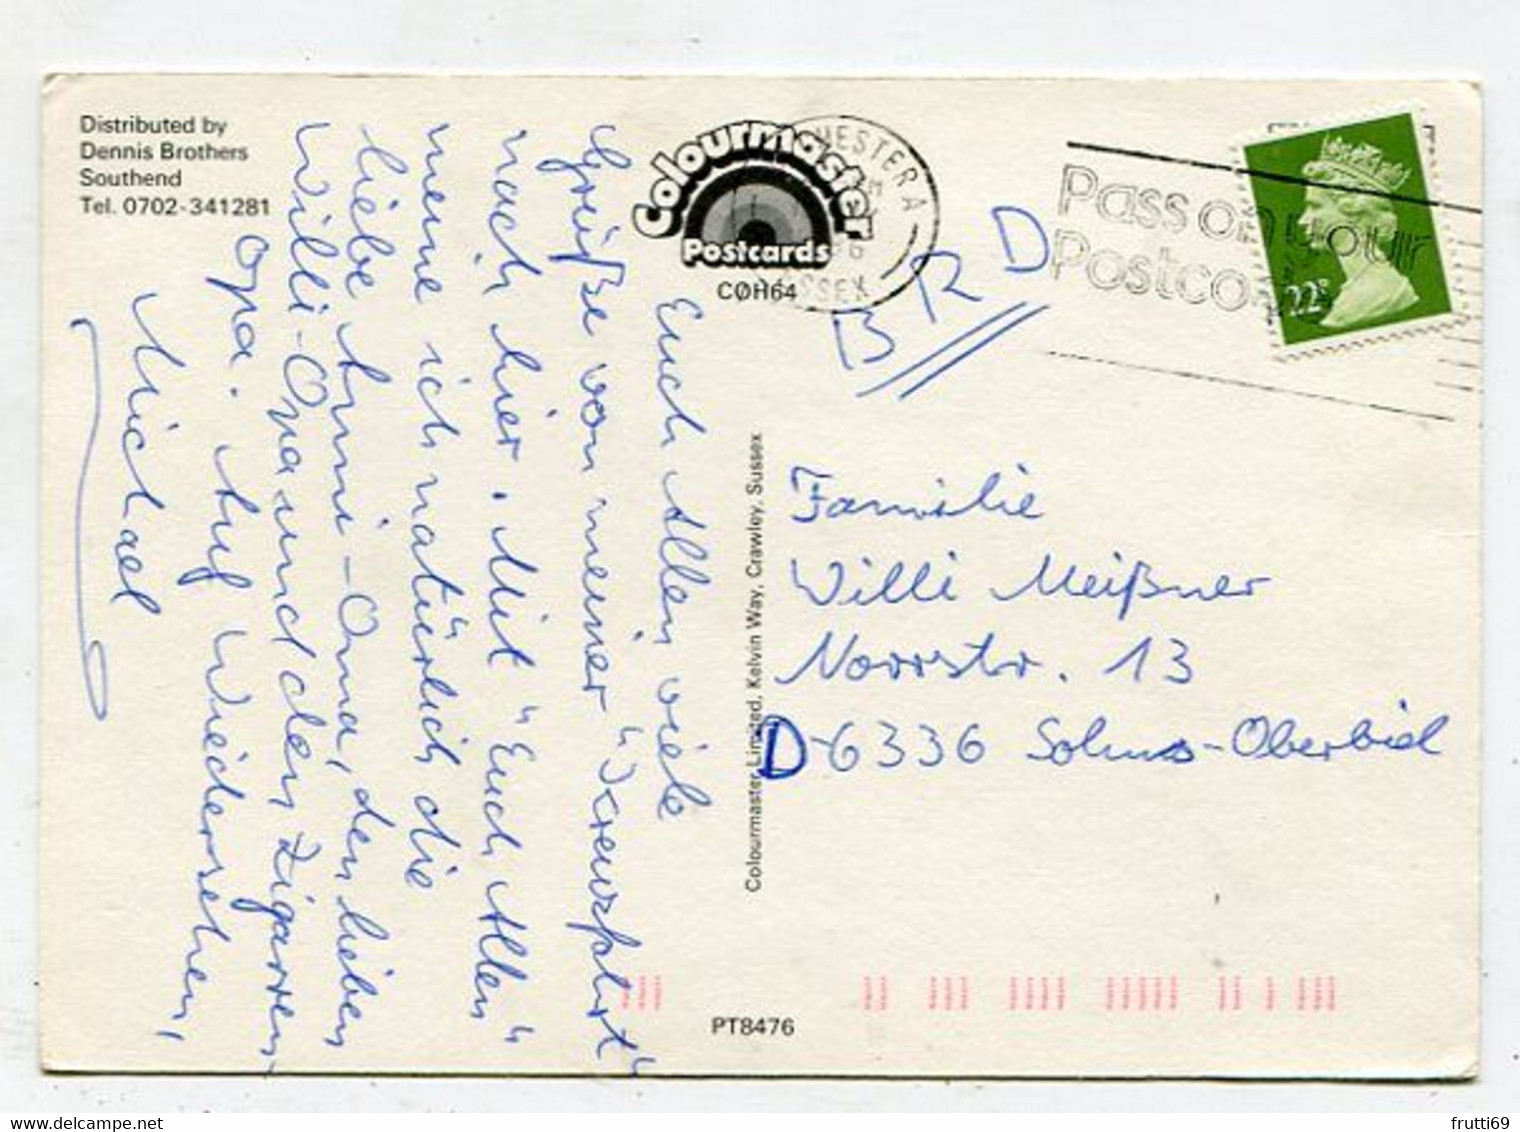 Distributed by
Dennis Brothers
Southend
Tel. 0702-341281
Colourmaster
Postcards
CØH64
HESTER A
SSEX
Pass on your
Postco
22P
BRD
Euch Allen viele
Grüße von meiner "Kreuzfahrt"
nach hier. Mit "Euch Allen"
meine ich natürlich die
liebe Ammi-Oma, den lieben
Willi-Opa und den Zigarren-
Opa. Auf Wiedersehen,
Michael
Colourmaster Limited, Kelvin Way, Crawley, Sussex
Familie
Willi Meißner
Norrstr. 13
D-6336 Solms-Oberbiel
PT8476
delcampe.net
frutti69